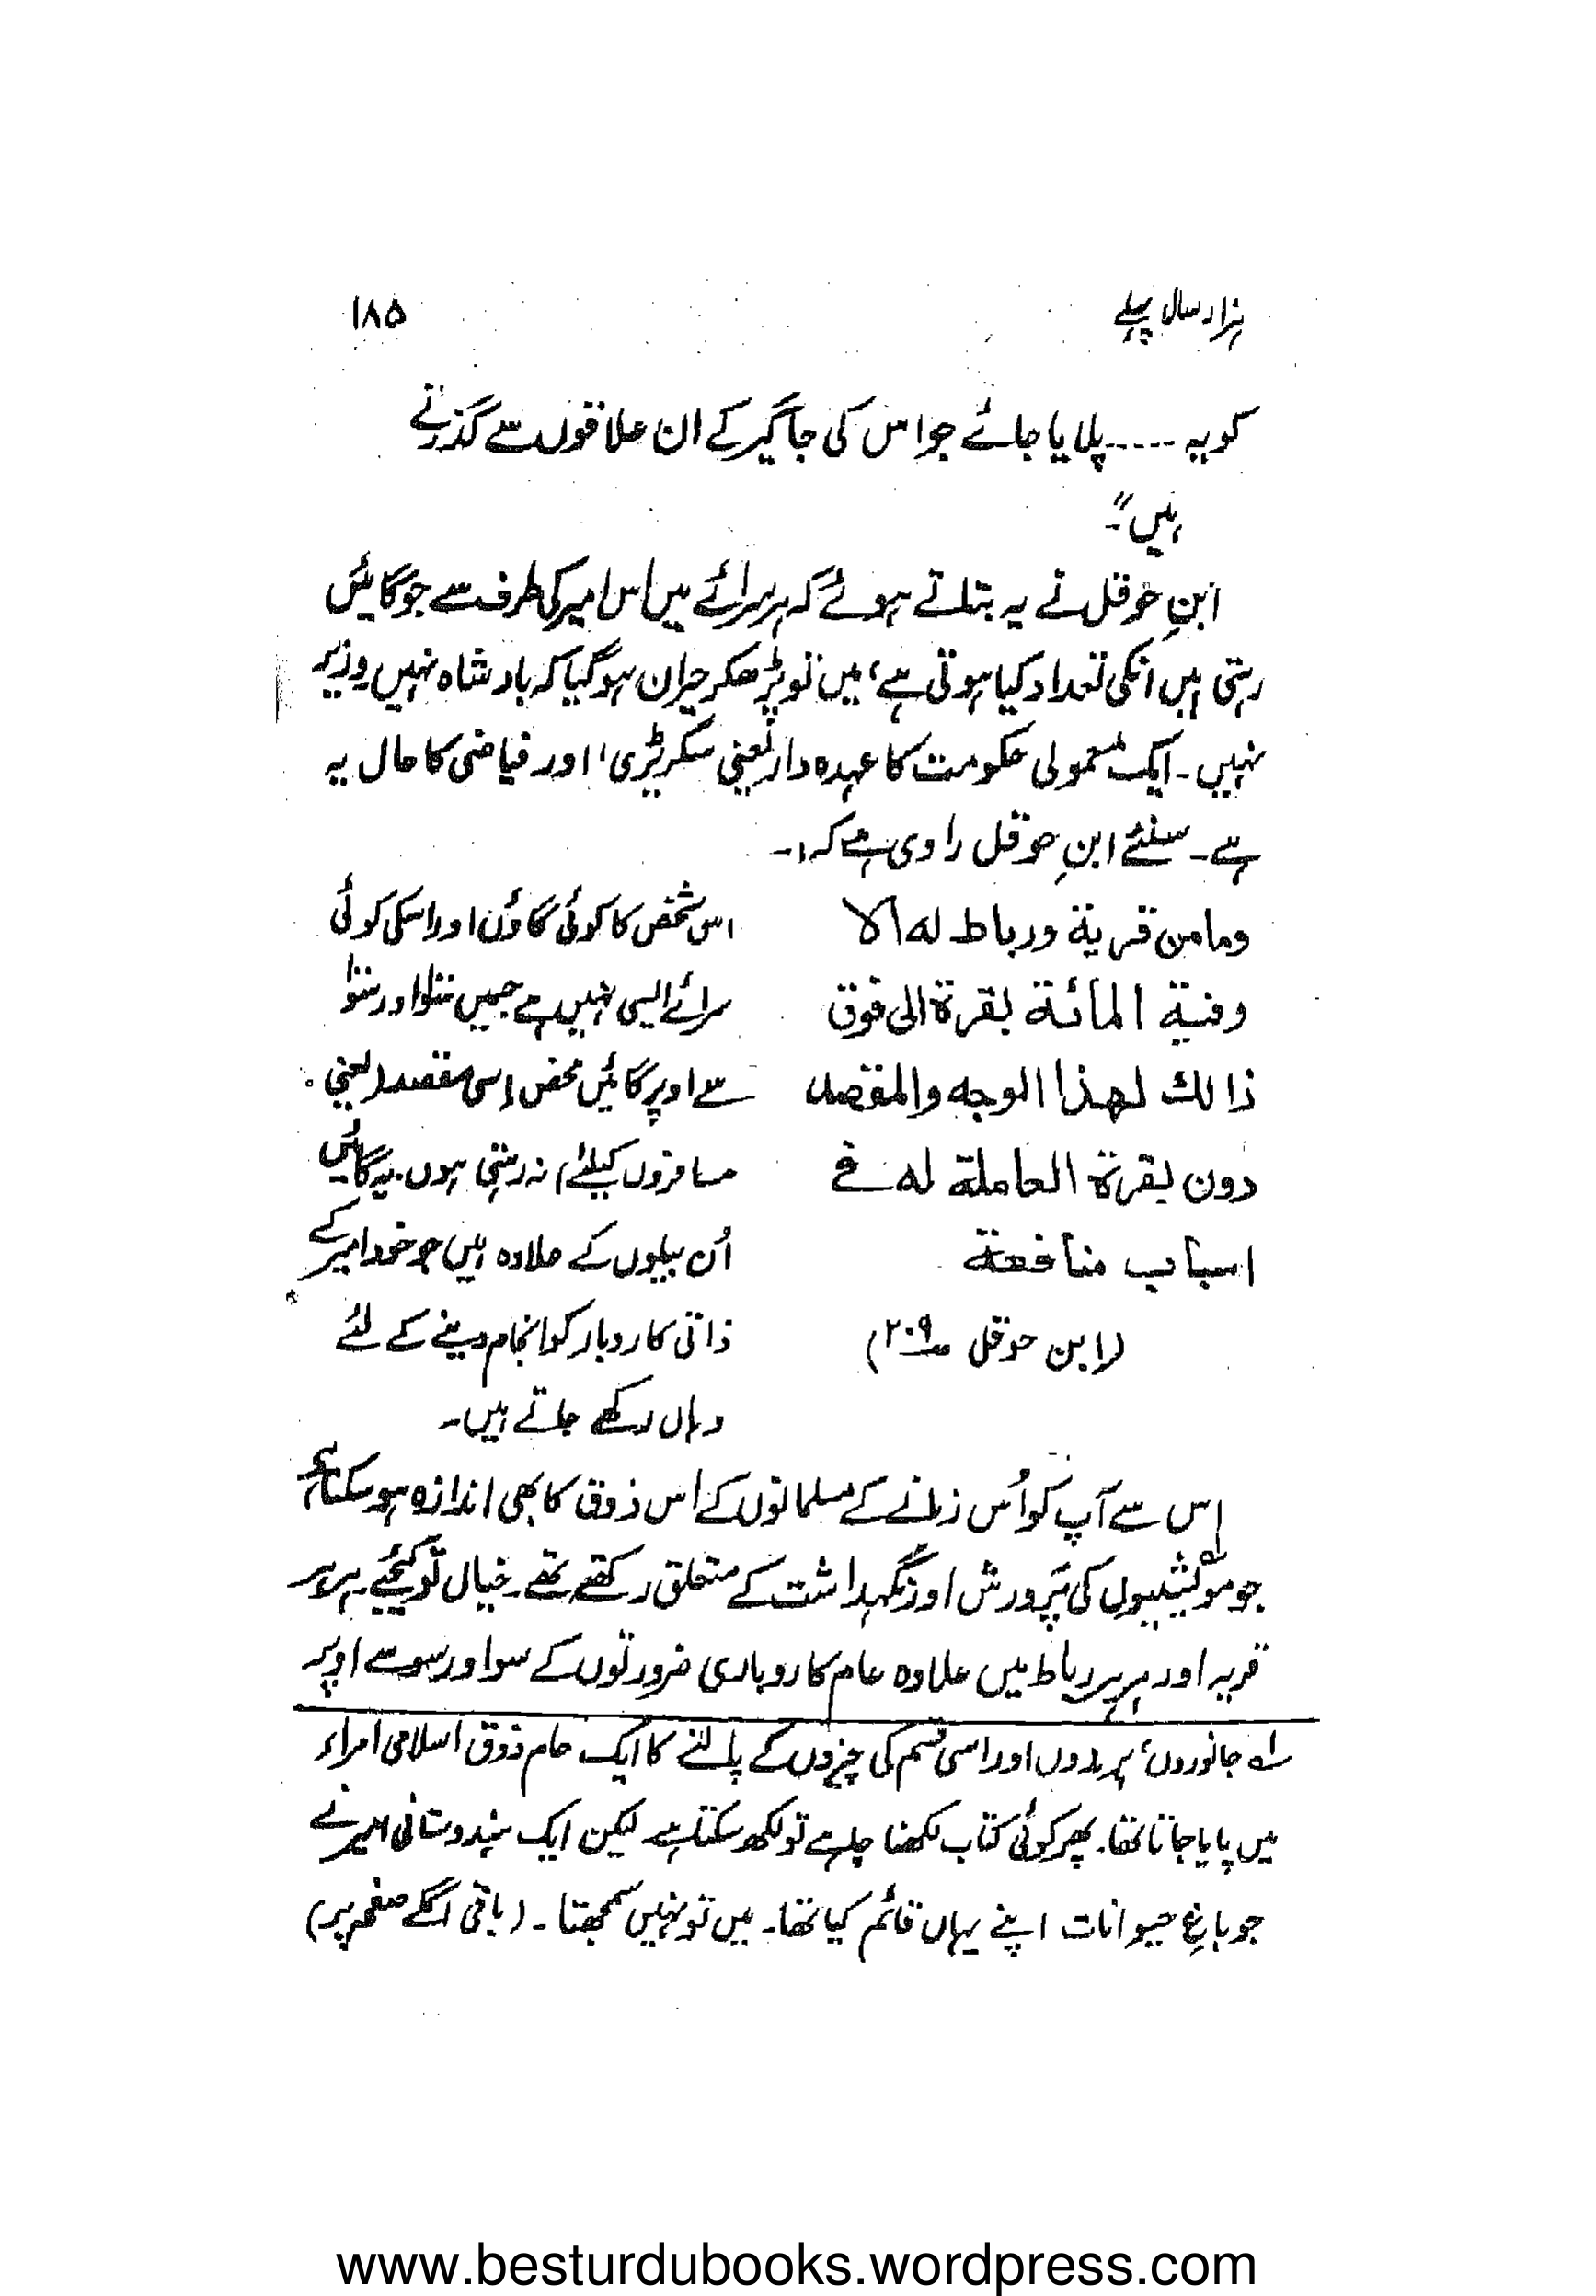 ہزار سال پہلے
۱۸۵
کو یہ ----- پلایا جائے جو اس کی جاگیر کے ان علاقوں سے گذرتے
ہیں"۔
ابنِ حوقل نے یہ بتلاتے ہوئے کہ ہر سرائے میں اس امیر کی طرف سے جو گائیں
رہتی ہیں انکی تعداد کیا ہوتی ہے، میں تو پڑھکر حیران ہو گیا کہ بادشاہ نہیں وزیر
نہیں۔ ایک معمولی حکومت کا عہدہ دار یعنی سکرٹری، اور فیاضی کا حال یہ
ہے۔ سنئے ابنِ حوقل راوی ہے کہ:۔
وما من قرية ورباط له الا
وفية المائة بقرة الى فوق
ذالك لهذا الوجه والمقصد
دون بقرة العاملة له فى
اسباب منافعة
(ابن حوقل صـ۲۰۹)
اس شخص کا کوئی گاؤں اور اسکی کوئی
سرائے ایسی نہیں ہے جسمیں سَو اور سَو
سے اوپر گائیں محض اِسی مقصد (یعنی
مسافروں کیلئے) نہ رہتی ہوں۔ یہ گائیں
اُن بیلوں کے علاوہ ہیں جو خود امیر کے
ذاتی کاروبار کو انجام دینے کے لئے
وہاں رکھے جاتے ہیں۔
اِس سے آپ کو اُس زمانے کے مسلمانوں کے اس ذوق کا بھی اندازہ ہو سکتا ہے
جو مویشیوں کی پرورش اور نگہداشت کے متعلق رکھتے تھے۔ خیال تو کیجئے ہر ہر
قریہ اور ہر ہر رباط میں علاوہ عام کاروباری ضرورتوں کے سو اور سو سے اوپر
لہ جانوروں، پرندوں اور اسی قسم کی چیزوں کے پالنے کا ایک عام ذوق اسلامی امراء
میں پایا جاتا تھا۔ پھر کوئی کتاب لکھنا چاہے تو لکھ سکتا ہے لیکن ایک ہندوستانی امیر نے
جو باغِ حیوانات اپنے یہاں قائم کیا تھا۔ میں تو نہیں سمجھتا۔ (باقی اگلے صفحہ پر)
www.besturdubooks.wordpress.com